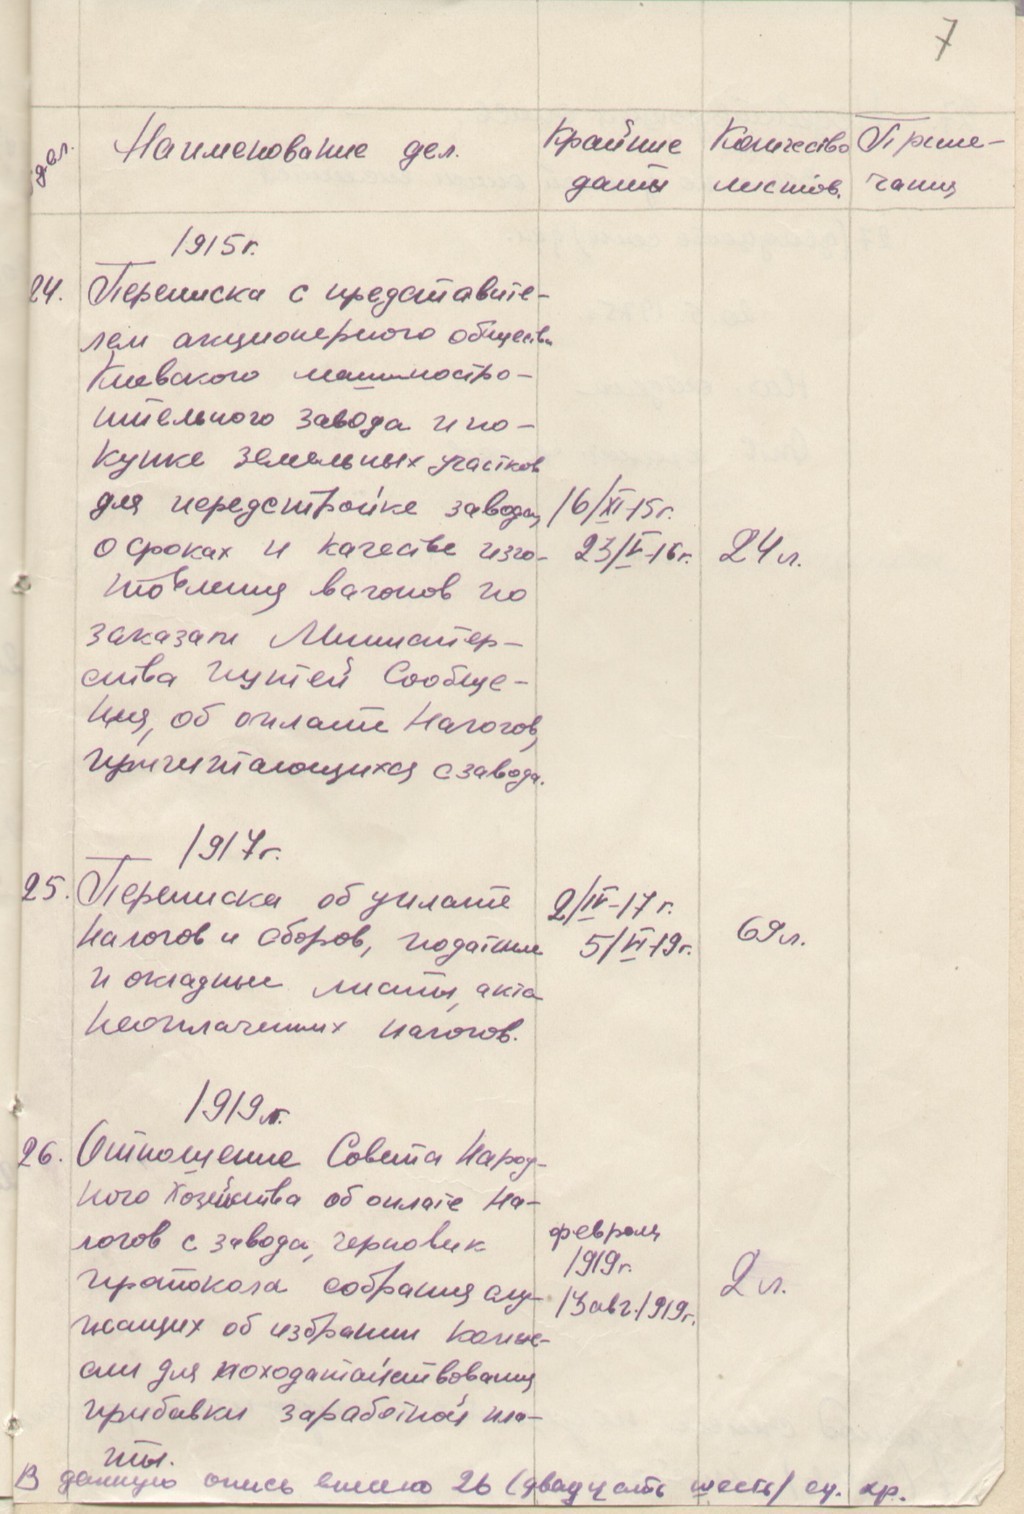 7
дел.
Наименование дел.
Крайние
даты
Количество
листов.
Приме-
чания
1915г.
24. Переписка с представите-
лем акционерного обществ
Киевского машиностро-
ительного завода и по-
купке земельных участков
для передстройке завода, 16/XI-15г.
о сроках и качестве изго- 23/V-16г. 24л.
товления вагонов по
заказам Министер-
ства Путей Сообще-
ния, об оплате налогов,
причитающихся с завода.
1917г.
25. Переписка об уплате 2/IV-17г.
налогов и сборов, податные 5/VI-19г. 69л.
и окладные листы, акта
неоплаченных налогов.
1919г.
26. Отношение Совета Народ-
ного Хозяйства об оплате на-
логов с завода, черновик
протокола собрания слу-
жащих об избрании комис-
сии для походатайствования
прибавки заработной пла-
ты.
февраль
1919г.
13 авг. 1919г.
2 л.
В данную опись внесено 26 (двадцать шесть) ед. хр.